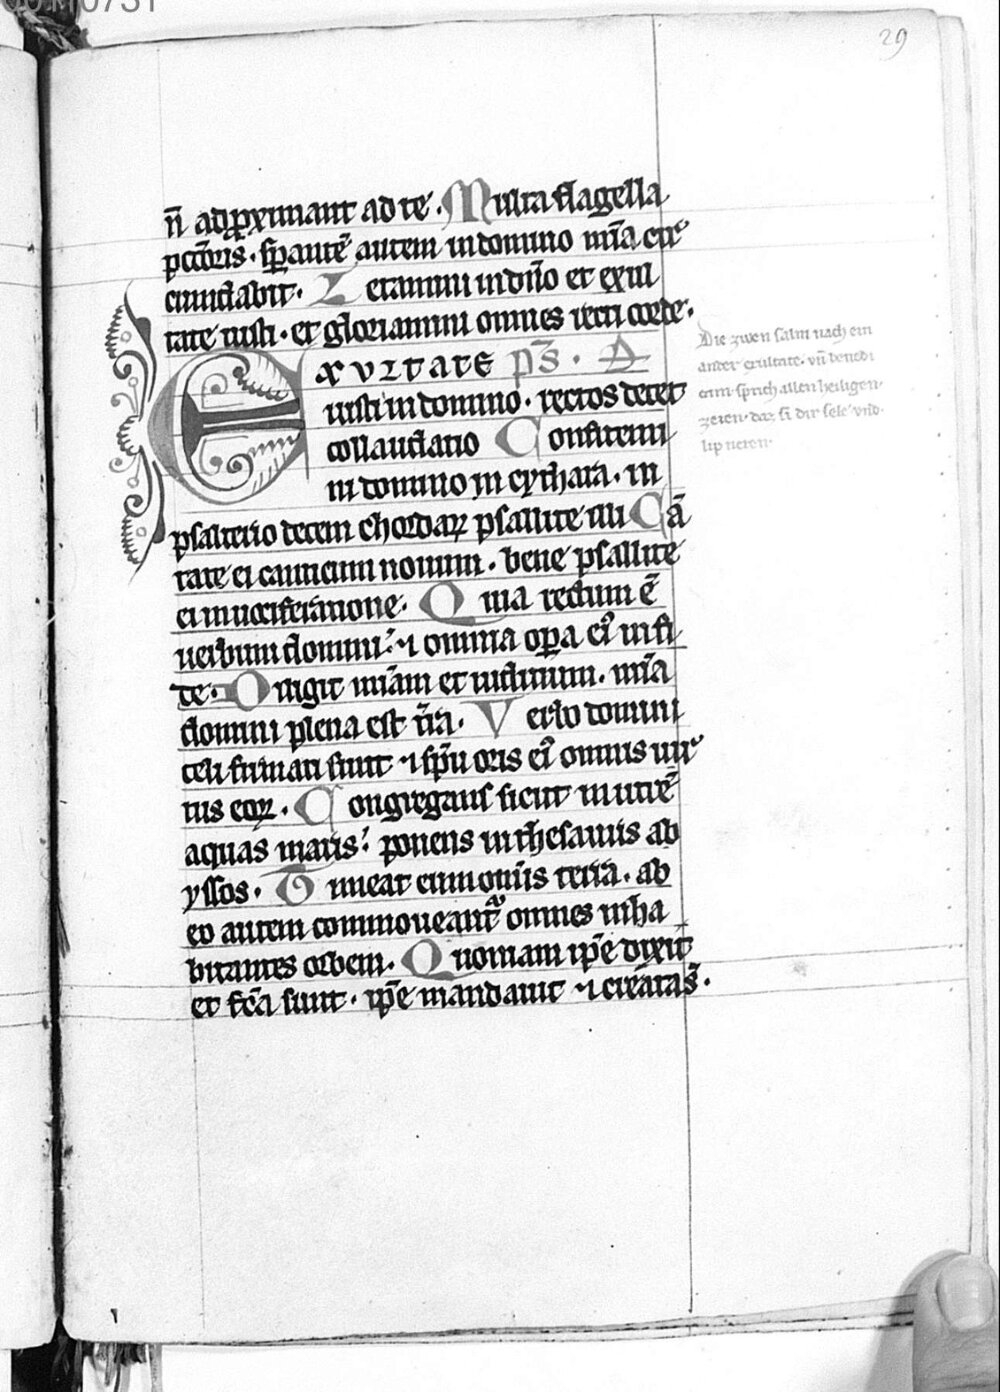 29
n̄ adꝓximant ad te. Multa flagella
pcc̄oris. sꝑantē autem in domino mīa cir
cumdabit. Letamini in dn̄o et exul
tate iusti. et gloriamini omnes recti corde.
EXVLTATE ps̄. D
iusti in domino. rectos decet
collaudatio Confitemini
in domino in cythara. in
psalterio decem chordaꝝ psallite illi Cā
tate ei canticum nouum. bene psallite
ei in uociferatione. Quia rectum ē
uerbum domini: ⁊ omnia oꝑa eiꝰ in fi
de. Diligit mīam et iudicium. mīa
domini plena est t̄ra. Verbo domini
celi firmati sunt ⁊ sp̄u oris eiꝰ omnis uir
tus eoꝝ. Congregans sicut in utrē
aquas maris: ponens in thesauris ab
yssos. Timeat eum om̄is terra. ab
eo autem commoueant᷑ omnes inha
bitantes orbem. Quoniam ip̄e dixit
et fc̄a sunt. ip̄e mandauit ⁊ creata s̄.
Die zwen salm nach ein
ander exultate. vn̄ benedi
cam sprich allen heiligen.